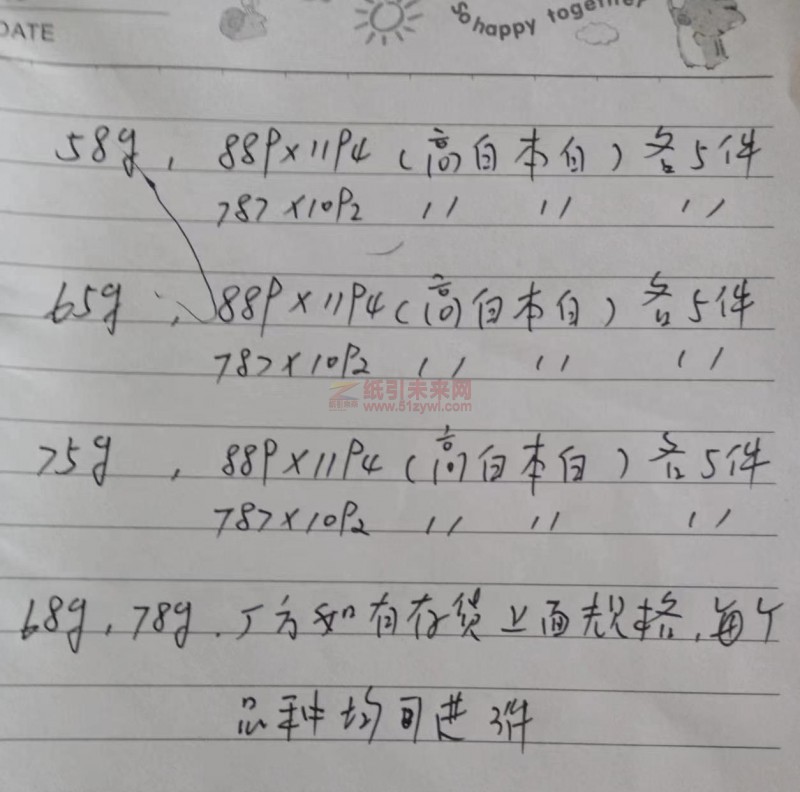 DATE
So happy together
58g, 889×1194(高白本白)各5件
787×1092 〃 〃 〃
65g, 889×1194(高白本白)各5件
787×1092 〃 〃 〃
纸引未来网
www.51zywl.com
75g, 889×1194(高白本白)各5件
787×1092 〃 〃 〃
68g, 78g. 厂方如有存货上面规格,每个
品种均可进3件